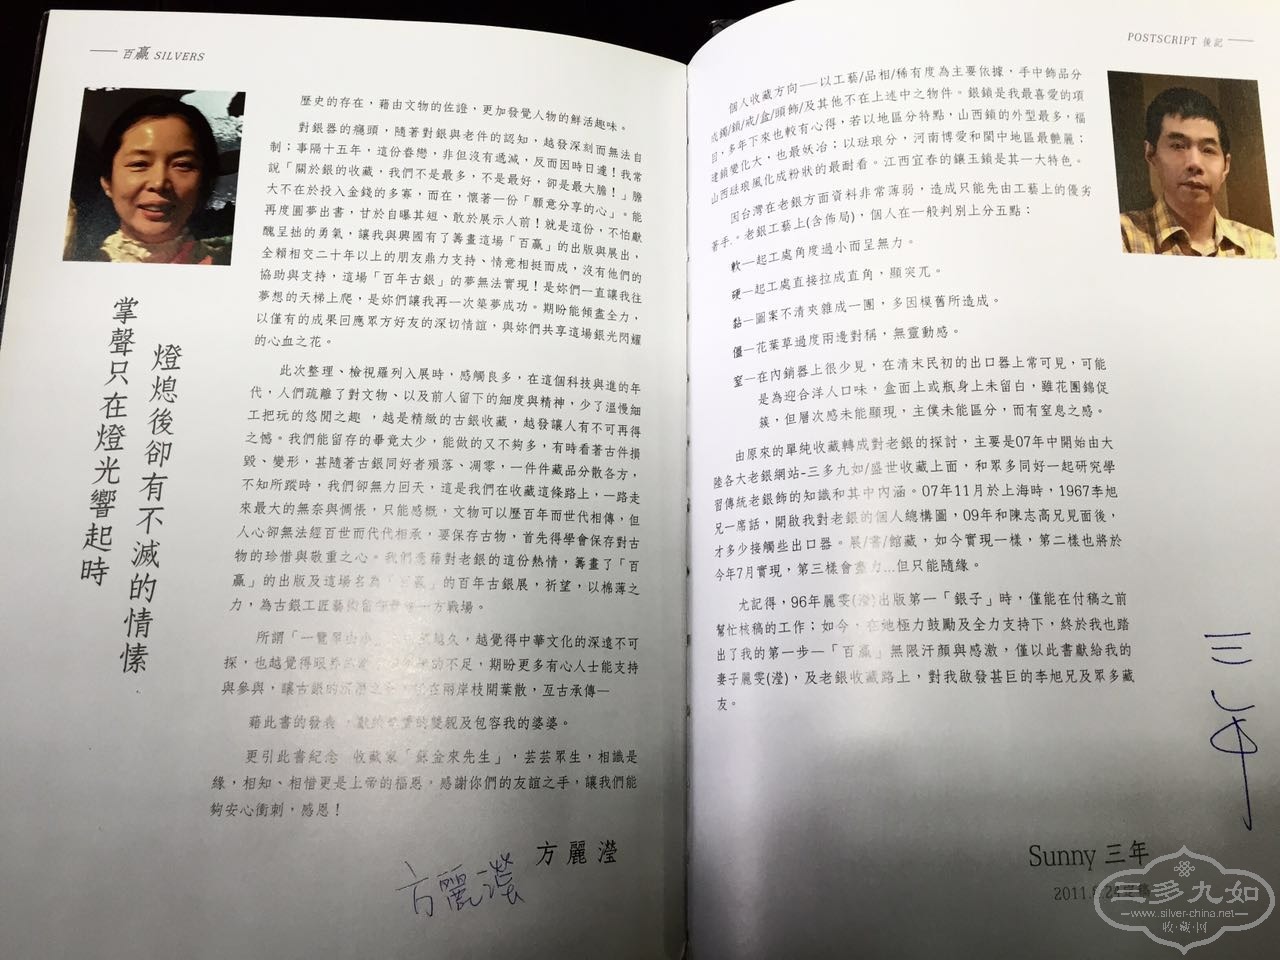 百贏 SILVERS
掌聲只在燈光響起時
燈熄後卻有不滅的情愫
歷史的存在，藉由文物的佐證、更加發覺人物的鮮活趣味。
對銀器的癮頭，隨著對銀與老件的認知，越發深刻而無法自
制；事隔十五年，這份眷戀，非但沒有遞減，反而因時日遽！我常
說「關於銀的收藏，我們不是最多，不是最好，卻是最大膽！」膽
大不在於投入金錢的多寡，而在，懷著一份「願意分享的心」。能
再度圓夢出書，甘於自曝其短、敢於展示人前！就是這份，不怕獻
醜呈拙的勇氣，讓我與興國有了籌畫這場「百贏」的出版與展出，
全賴相交二十年以上的朋友鼎力支持、情意相挺而成，沒有他們的
協助與支持，這場「百年古銀」的夢無法實現！是妳們一直讓我往
夢想的天梯上爬，是妳們讓我再一次築夢成功。期盼能傾盡全力，
以僅有的成果回應眾方好友的深切情誼，與妳們共享這場銀光閃耀
的心血之花。
此次整理、檢視羅列入展時，感觸良多，在這個科技與進的年
代，人們疏離了對文物、以及前人留下的細度與精神，少了溫慢細
工把玩的悠閒之趣 ，越是精緻的古銀收藏，越發讓人有不可再得
之憾。我們能留存的畢竟太少，能做的又不夠多，有時看著古件損
毀、變形，甚隨著古銀同好者殞落、凋零，一件件藏品分散各方，
不知所蹤時，我們卻無力回天，這是我們在收藏這條路上，一路走
來最大的無奈與惆悵，只能感慨，文物可以歷百年而世代相傳，但
人心卻無法經百世而代代相承，要保存古物，首先得學會保存對古
物的珍惜與敬重之心。我們憑藉對老銀的這份熱情，籌畫了「百
贏」的出版及這場名為「百贏」的百年古銀展，祈望，以棉薄之
力，為古銀工匠藝術留 一方戰場。
所謂「一覽 越久，越覺得中華文化的深遠不可
探，也越覺得 不足，期盼更多有心人士能支持
與參與，讓古銀的 在兩岸枝開葉散，亙古承傳—
藉此書的發表，獻給 的雙親及包容我的婆婆。
更引此書紀念 收藏家「蘇金來先生」，芸芸眾生，相識是
緣，相知、相惜更是上帝的福恩。感謝你們的友誼之手，讓我們能
夠安心衝刺，感恩！
方麗瀅
方麗瀅
POSTSCRIPT 後記
個人收藏方向——以工藝/品相/稀有度為主要依據，手中飾品分
成鐲/鎖/戒/盒/頭飾/及其他不在上述中之物件。銀鎖是我最喜愛的項
目，多年下來也較有心得，若以地區分特點，山西鎖的外型最多，福
建鎖變化大，也最妖冶；以琺琅分，河南博愛和閩中地區最艷麗；
山西琺琅風化成粉狀的最耐看。江西宜春的鑲玉鎖是其一大特色。
因台灣在老銀方面資料非常薄弱，造成只能先由工藝上的優劣
著手.。老銀工藝上(含佈局)，個人在一般判別上分五點：
軟—起工處角度過小而呈無力。
硬—起工處直接拉成直角，顯突兀。
黏—圖案不清夾雜成一團，多因模舊所造成。
僵—花葉草過度兩邊對稱，無靈動感。
窒—在內銷器上很少見，在清末民初的出口器上常可見，可能
是為迎合洋人口味，盒面上或瓶身上未留白，雖花團錦促
簇，但層次感未能顯現，主僕未能區分，而有窒息之感。
由原來的單純收藏轉成對老銀的探討，主要是07年中開始由大
陸各大老銀網站-三多九如/盛世收藏上面，和眾多同好一起研究學
習傳統老銀飾的知識和其中內涵。07年11月於上海時，1967李旭
兄一席話，開啟我對老銀的個人總構圖，09年和陳志高兄見面後，
才多少接觸些出口器。展/書/館藏，如今實現一樣，第二樣也將於
今年7月實現，第三樣會盡力...但只能隨緣。
尤記得，96年麗雯(瀅)出版第一「銀子」時，僅能在付稿之前
幫忙核稿的工作；如今，在她極力鼓勵及全力支持下，終於我也踏
出了我的第一步—「百贏」無限汗顏與感激，僅以此書獻給我的
妻子麗雯(瀅)，及老銀收藏路上，對我啟發甚巨的李旭兄及眾多藏
友。
三年
Sunny 三年
2011.
三多九如
www.silver-china.net
收·藏·网